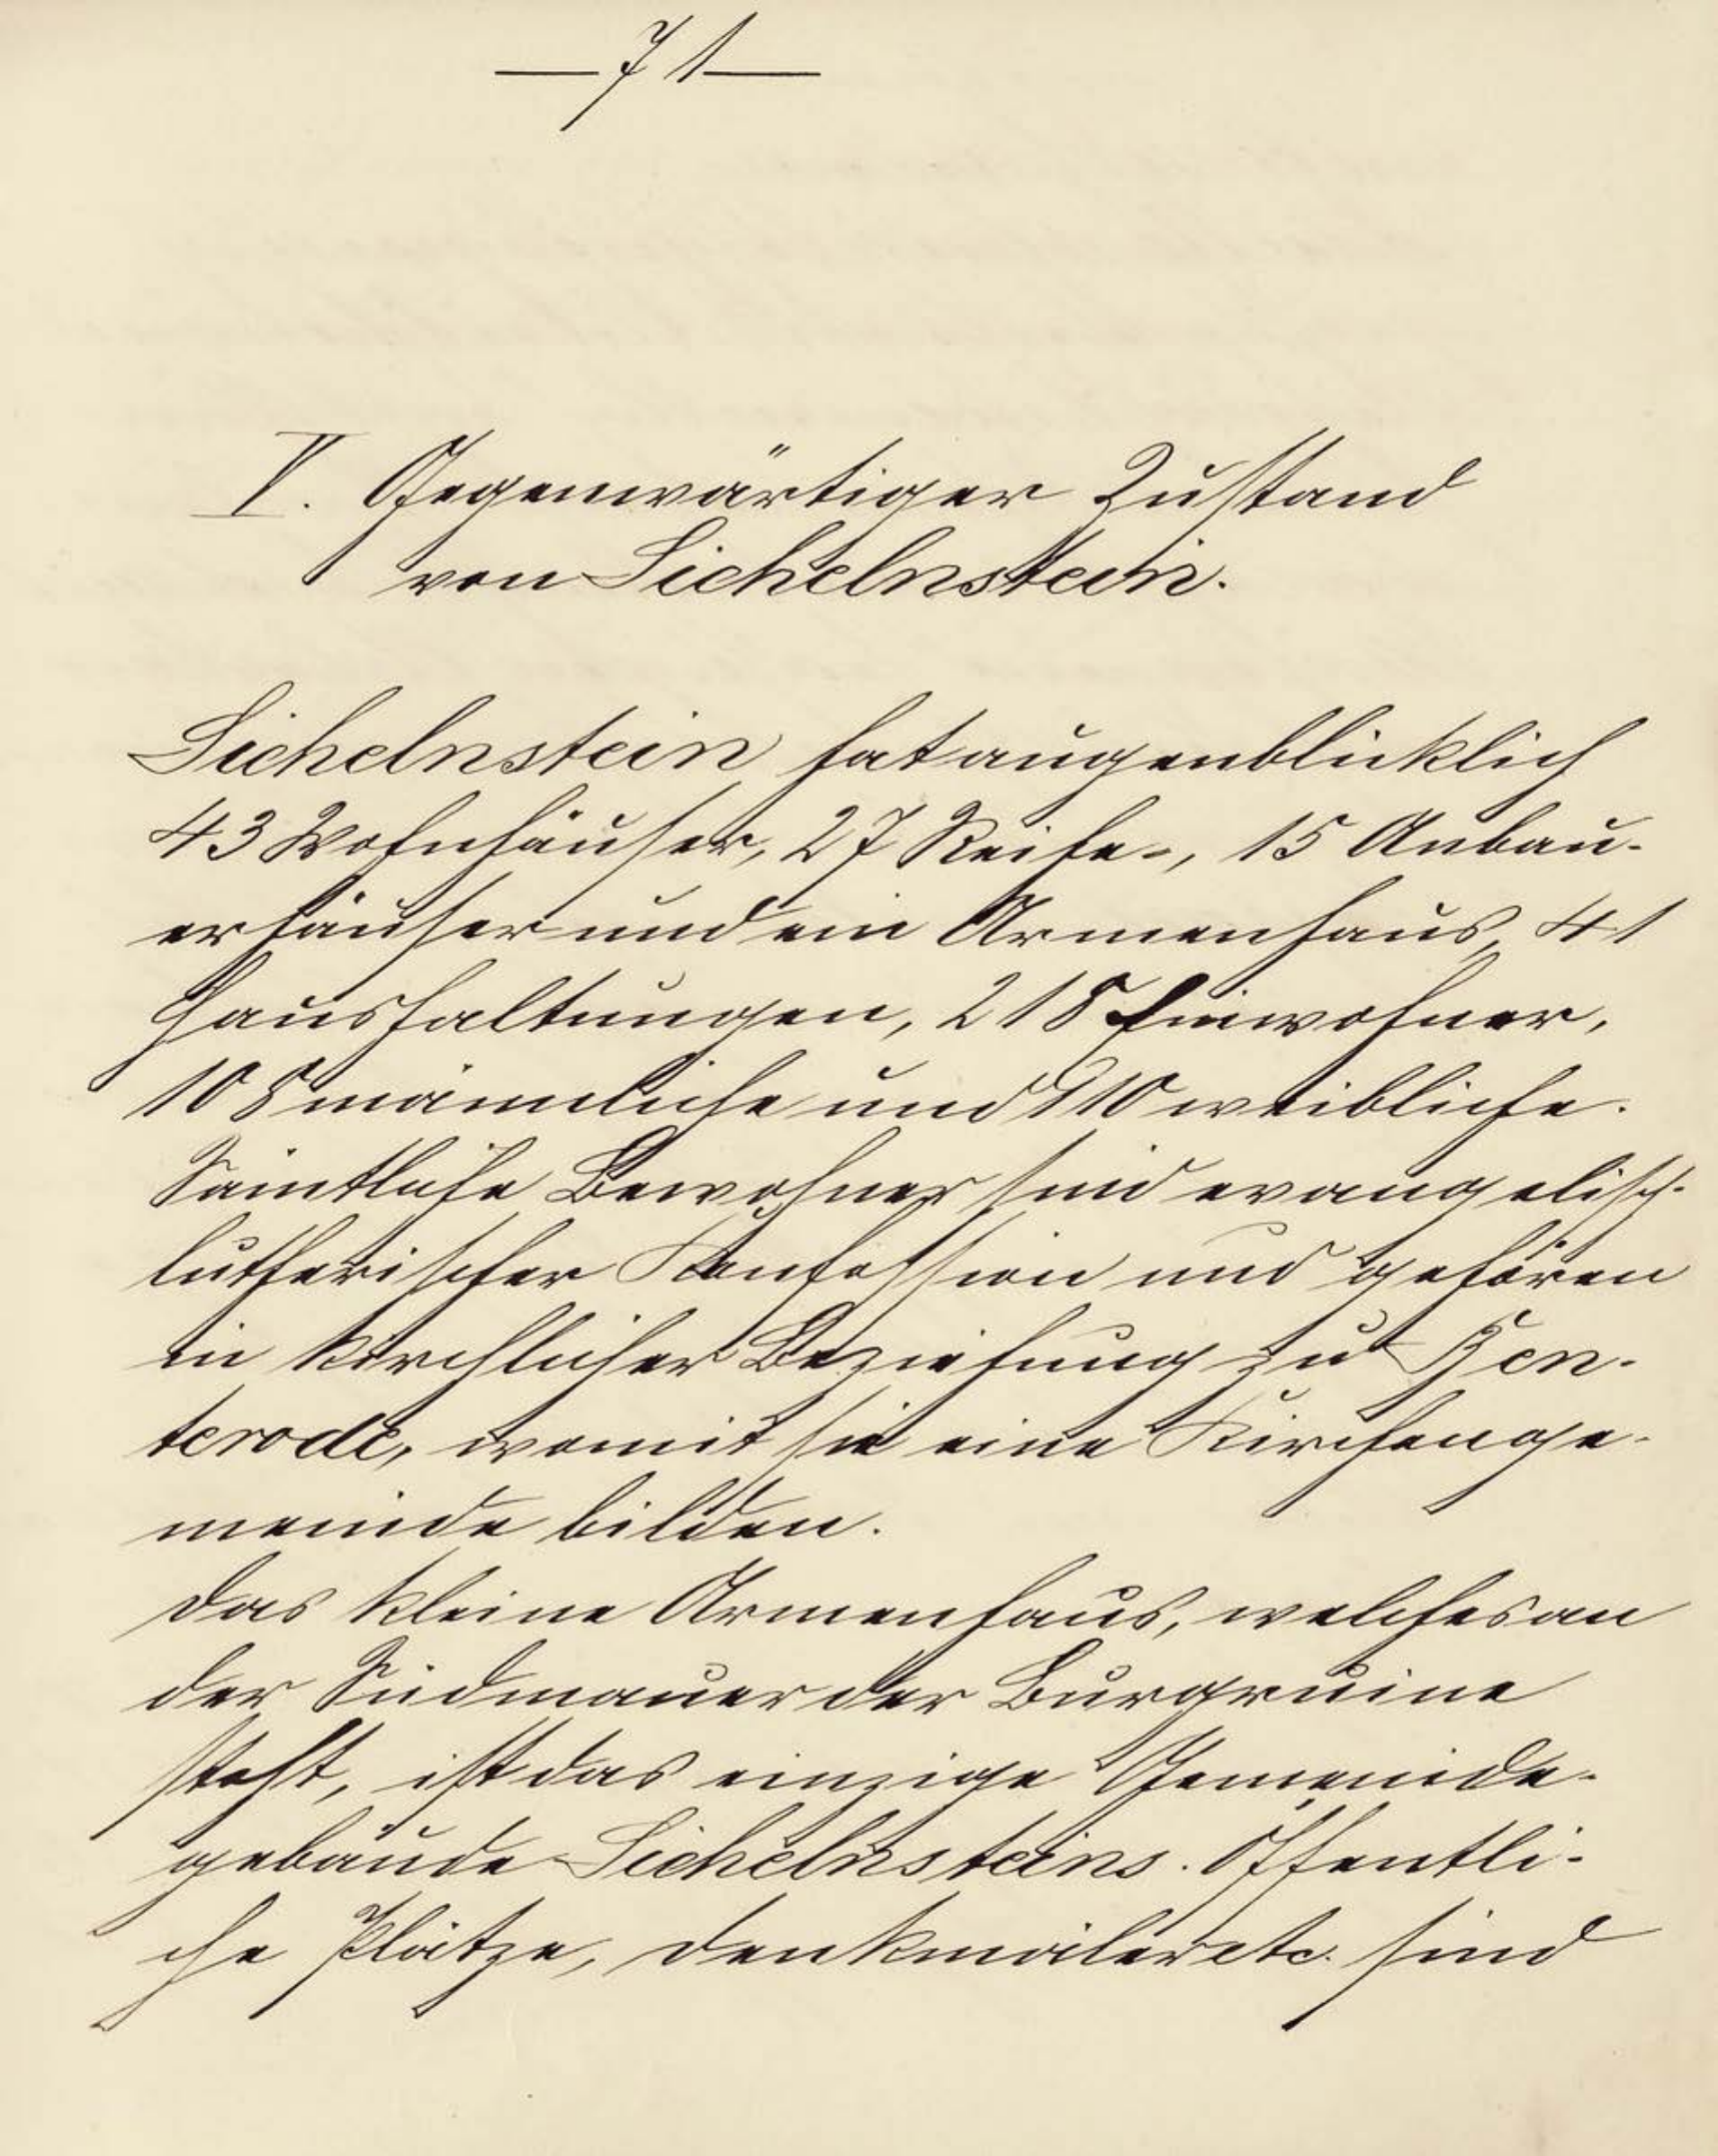 — 71 —
V. Gegenwärtiger Zustand
von Sichelnstein.
Sichelnstein hat augenblicklich
43 Wohnhäuser, 27 Reihe-, 15 Anbau-
erhäuser und ein Armenhaus, 41
Haushaltungen, 218 Einwohner,
108 männliche und 110 weibliche.
Sämtliche Bewohner sind evangelisch-
lutherischer Konfession und gehören
in kirchlicher Beziehung zu Ben-
terode, womit sie eine Kirchenge-
meinde bilden.
Das kleine Armenhaus, welches an
der Südmauer der Burgruine
steht, ist das einzige Gemeinde-
gebäude Sichelnsteins. Öffentli-
che Plätze, Denkmäler etc. sind